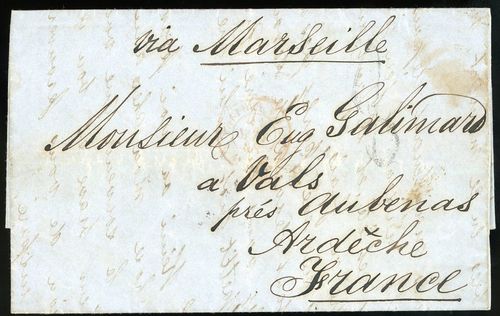 via Marseille
Monsieur Eug Galimard
a Vals
prés Aubenas
Ardêche
France